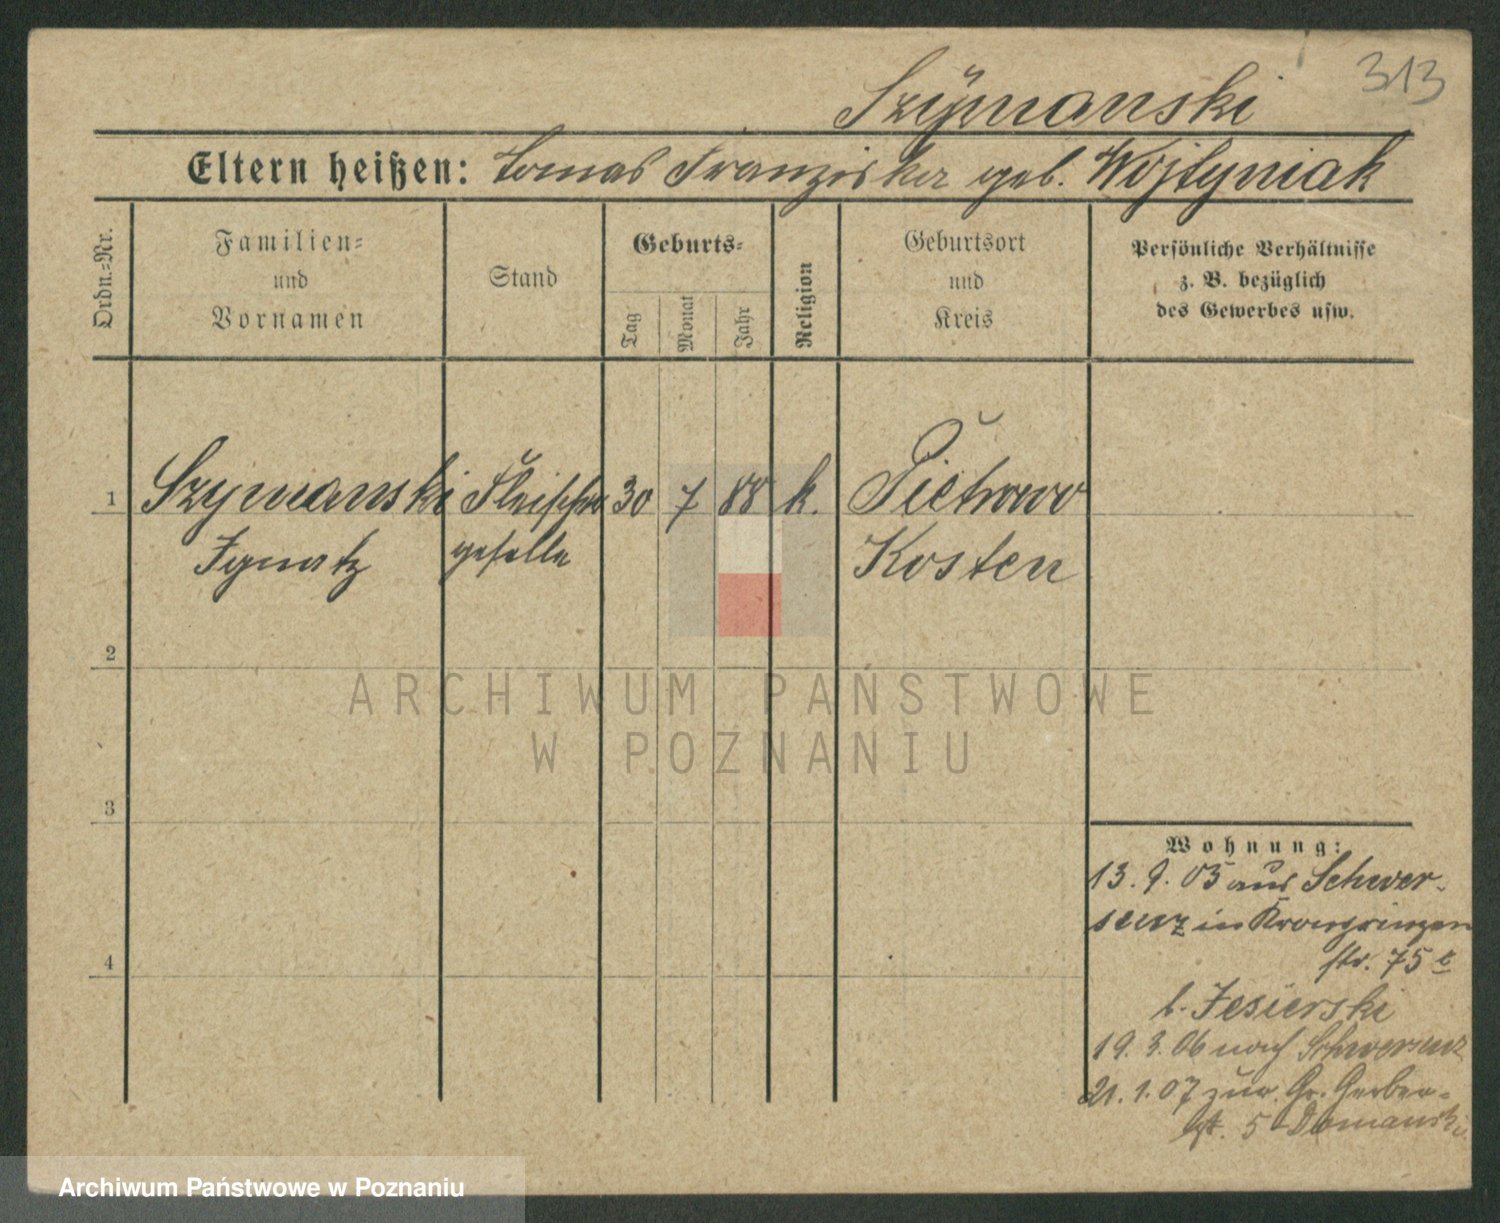 313
Szÿmanski
Eltern heißen: Tomas Franziska geb. Wojtyniak
Ordn.=Nr.
Familien=
und
Vornamen
Stand
Geburts=
Tag
Monat
Jahr
Religion
Geburtsort
und
Kreis
Persönliche Verhältnisse
z. B. bezüglich
des Gewerbes usw.
1 Szymanski Fleischer 30 7 88 k. Pietrowo
Ignatz geselle Kosten
2
ARCHIWUM PAŃSTWOWE
W POZNANIU
3
Wohnung:
13. 9. 05 aus Schwer-
senz in Kronprinzen
str. 75
b. Jesierski
19. 3. 06 nach Schwersenz
4
21. 1. 07 zur. Gr. Gerber-
st. 5 Domanski
Archiwum Państwowe w Poznaniu